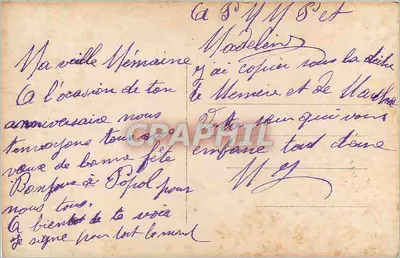 Ma vieille Mémaine
A l'ocasion de ton
anniversaire nous
t'envoyons tous nos
vœux de bonne fête
Bonjour à Popol pour
nous tous.
A bientot de te voir
je signe pour tout le monde
A P Y Y P et
Madeleine
j'ai copier sous la dictée
de Memere et de
Votre sœur qui vous
embrasse tout deux
M Y
CPAPHIL